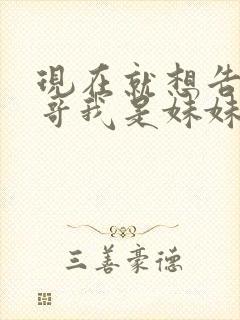 現在就想告
哥我是妹妹
三善豪德